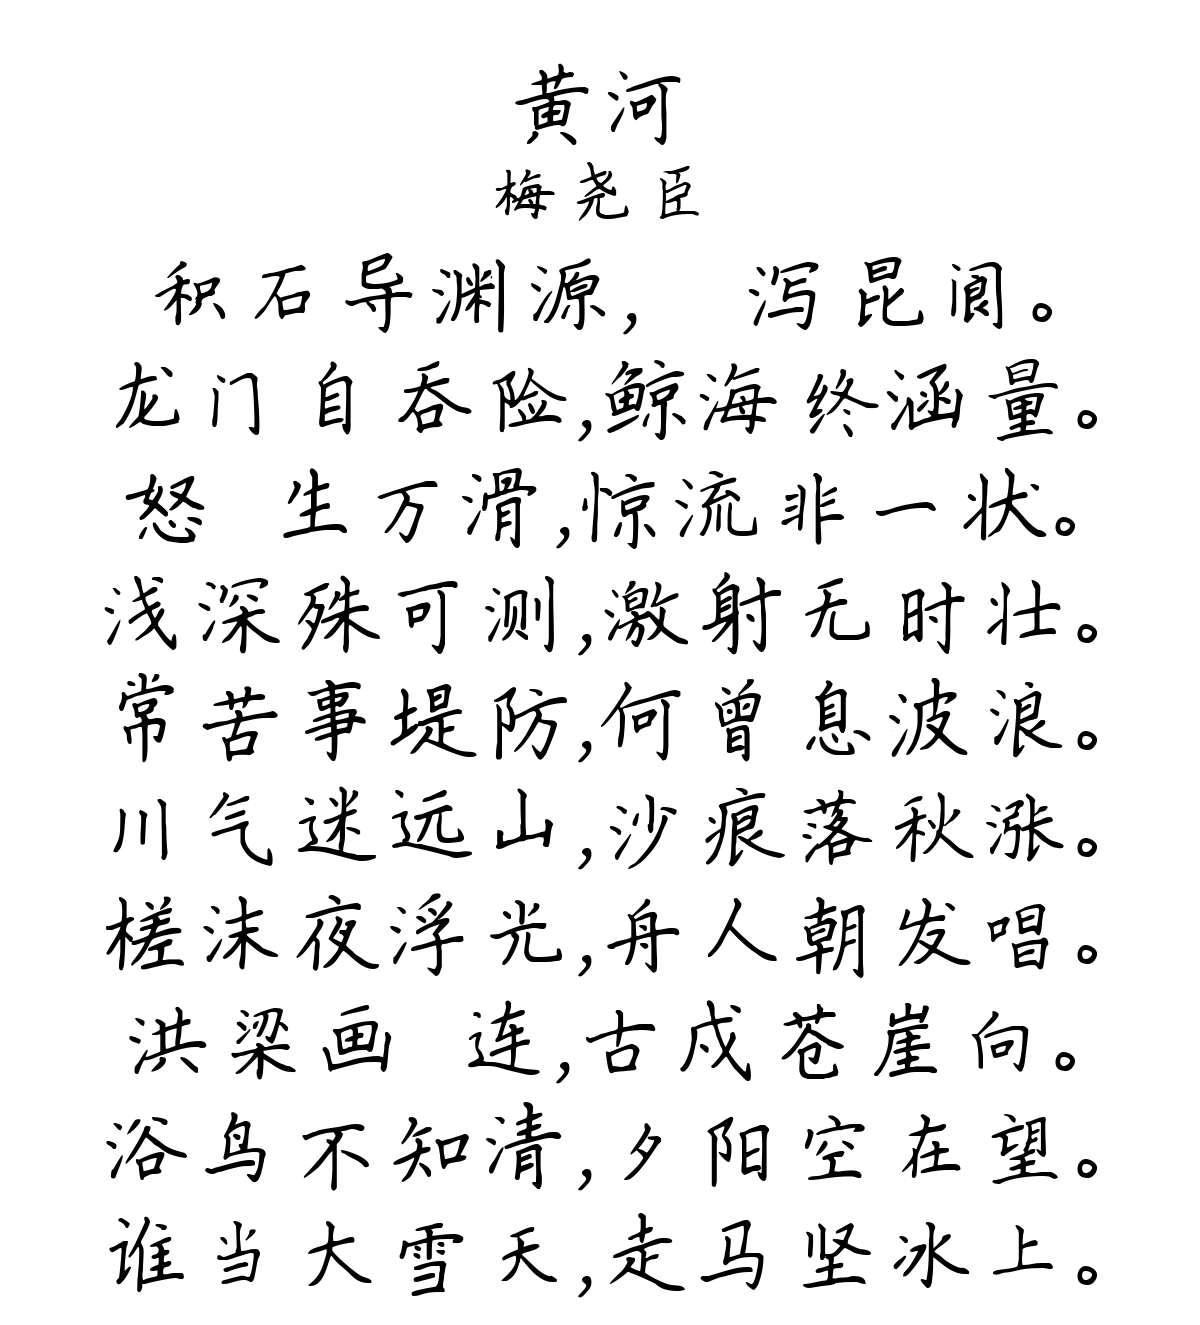 黄河
梅尧臣
积石导渊源， 泻昆阆。
龙门自吞险,鲸海终涵量。
怒 生万滑,惊流非一状。
浅深殊可测,激射无时壮。
常苦事堤防,何曾息波浪。
川气迷远山,沙痕落秋涨。
槎沫夜浮光,舟人朝发唱。
洪梁画 连,古戍苍崖向。
浴鸟不知清,夕阳空在望。
谁当大雪天,走马坚冰上。